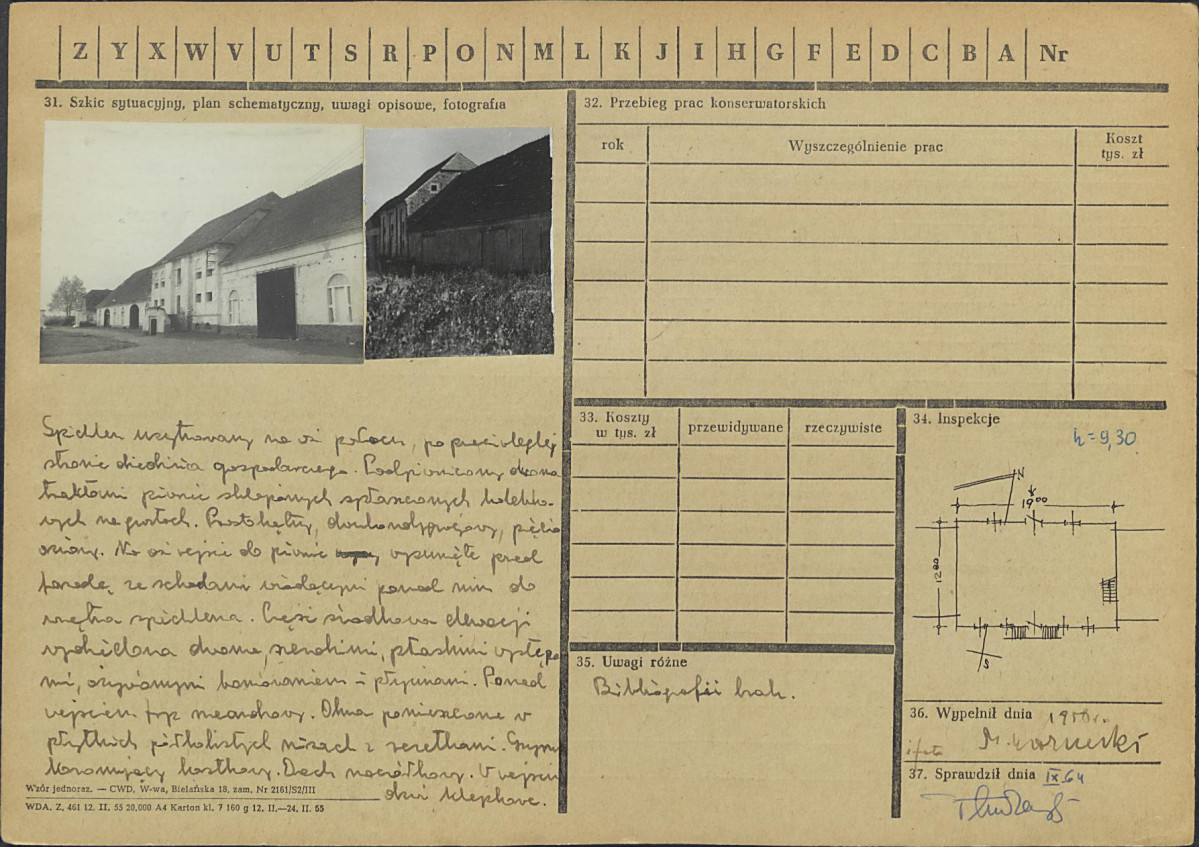 Z Y X W V U T S R P O N M L K J I H G F E D C B A Nr
31. Szkic sytuacyjny, plan schematyczny, uwagi opisowe, fotografia
Spichlerz usytuowany na osi pałacu, po przeciwległej
stronie dziedzińca gospodarczego. Podpiwniczony dwoma
traktami piwnic sklepionych spłaszczonych kolebko-
wych na gurtach. Prostokątny, dwukondygnacjowy, pięcio
osiowy. Na osi wejście do piwnic wysunięte przed
fasadę, ze schodami wiodącymi ponad nim do
wnętrza spichlerza. Część środkowa elewacji
wydzielona dwoma szerokimi, płaskimi występa
mi, ożywionymi boniowaniem i płycinami. Ponad
wejściem fryz meandrowy. Okna pomieszczone w
płytkich półkolistych niszach z rozetkami. Gzyms
koronujący kostkowy. Dach naczółkowy. W wejściu
drzwi klepkowe.
Wzór jednoraz. — CWD, W-wa, Bielańska 18, zam, Nr 2161/S2/III
WDA. Z. 461 12. II. 55 20,000 A4 Karton kl. 7 160 g 12. II.—24. II. 55
32. Przebieg prac konserwatorskich
rok
Wyszczególnienie prac
Koszt
tys. zł
33. Koszty
w tys. zł
przewidywane
rzeczywiste
34. Inspekcje
h = 9,30
N
19⁰⁰
12⁰⁰
S
35. Uwagi różne
Bibliografii brak.
36. Wypełnił dnia 1958 r.
i foto
37. Sprawdził dnia IX.64